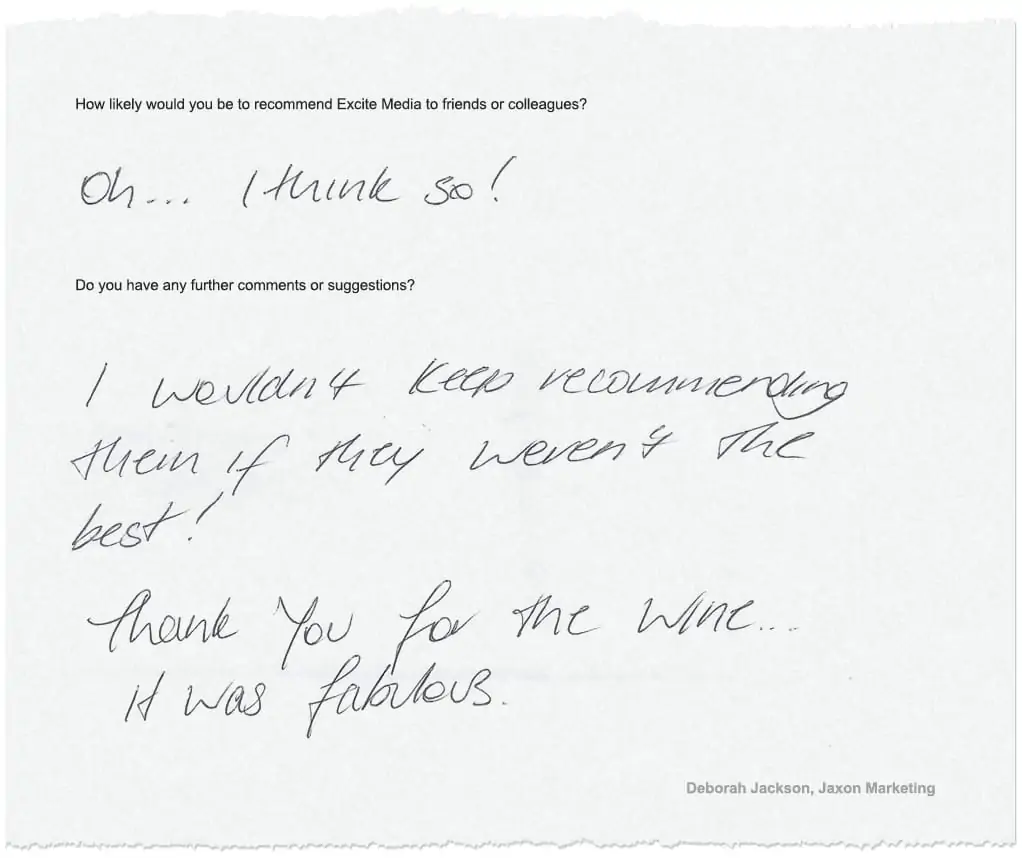 How likely would you be to recommend Excite Media to friends or colleagues?
Oh... I think so!
Do you have any further comments or suggestions?
I wouldn't keep recommending
them if they weren't the
best!
Thank You for the wine...
it was fabulous.
Deborah Jackson, Jaxon Marketing